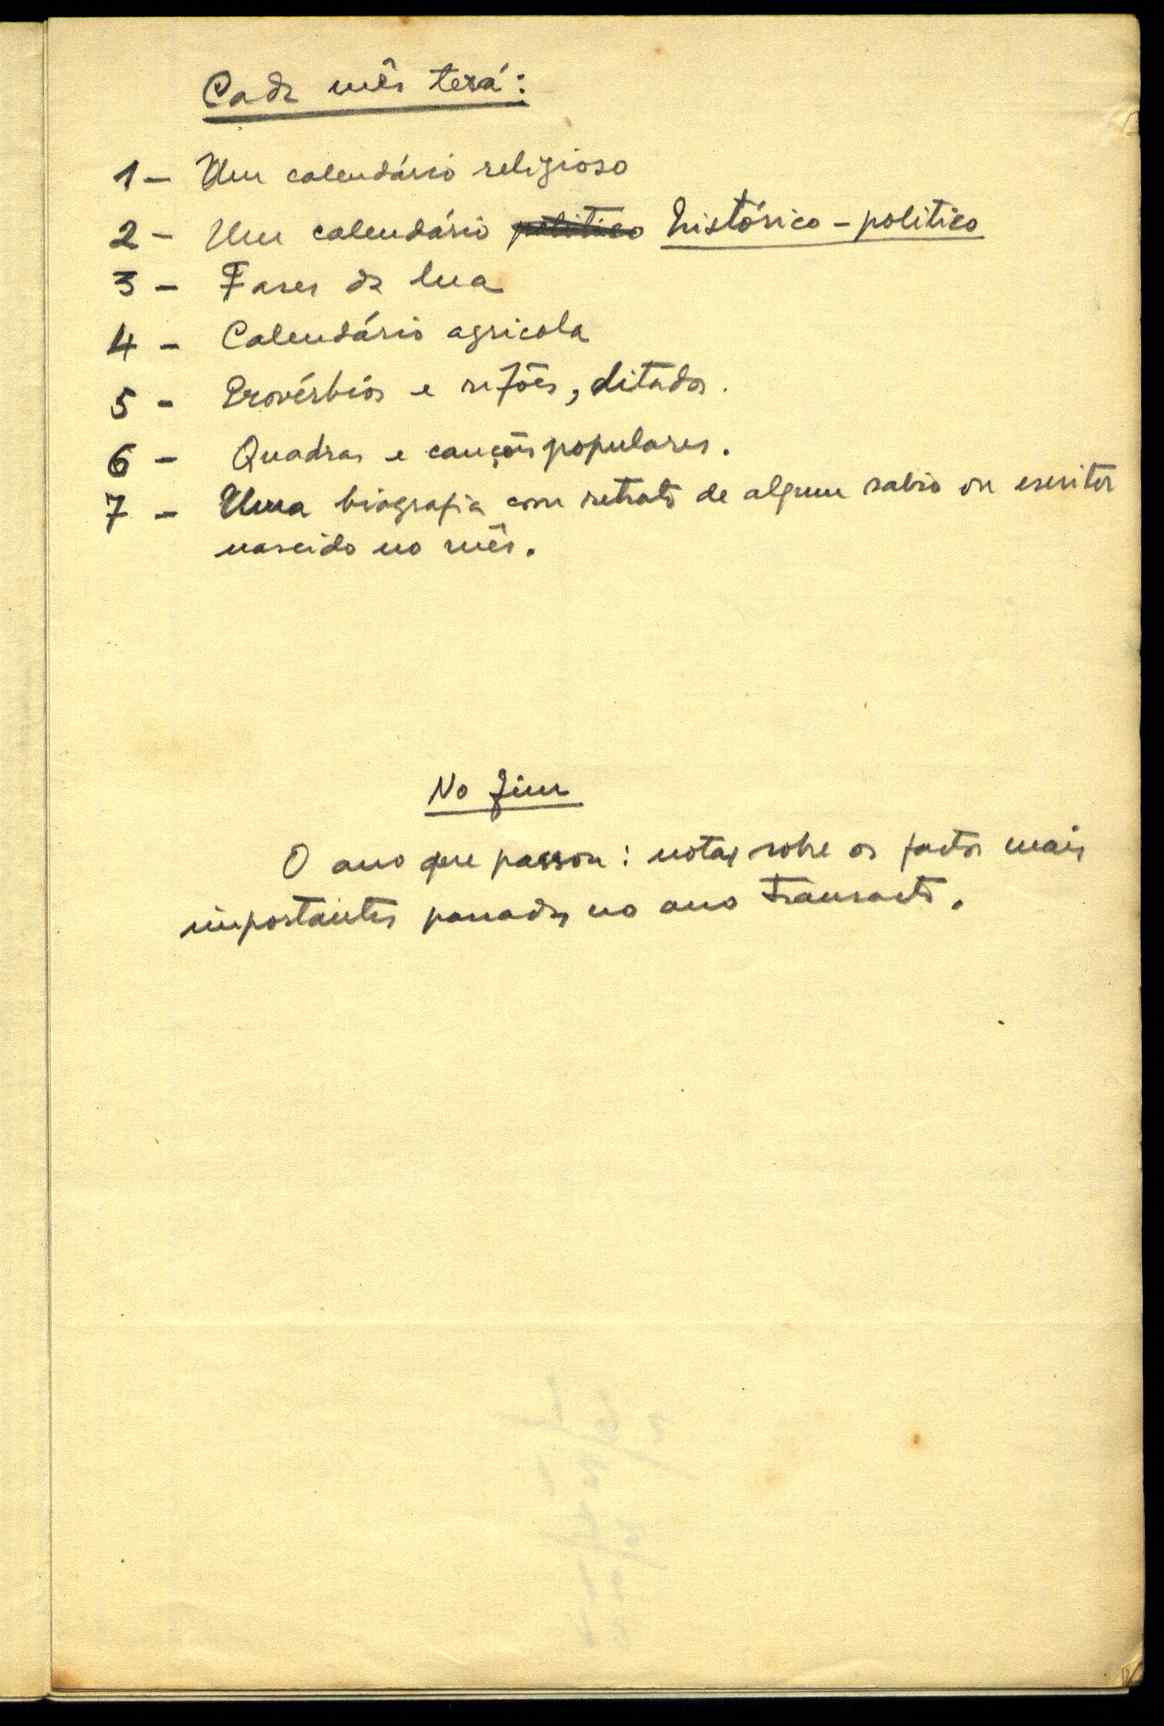 Cada mês terá:
1 – Um calendário religioso
2 – Um calendário politico histórico – politico
3 – Fases da lua
4 – Calendário agricola
5 – Provérbios e rifões, ditados.
6 – Quadras e canções populares.
7 – Uma biografia com retrato de algum sabio ou escritor
nascido no mês.
No fim
O ano que passou: notas sobre os factos mais
importantes passados no ano transacto.